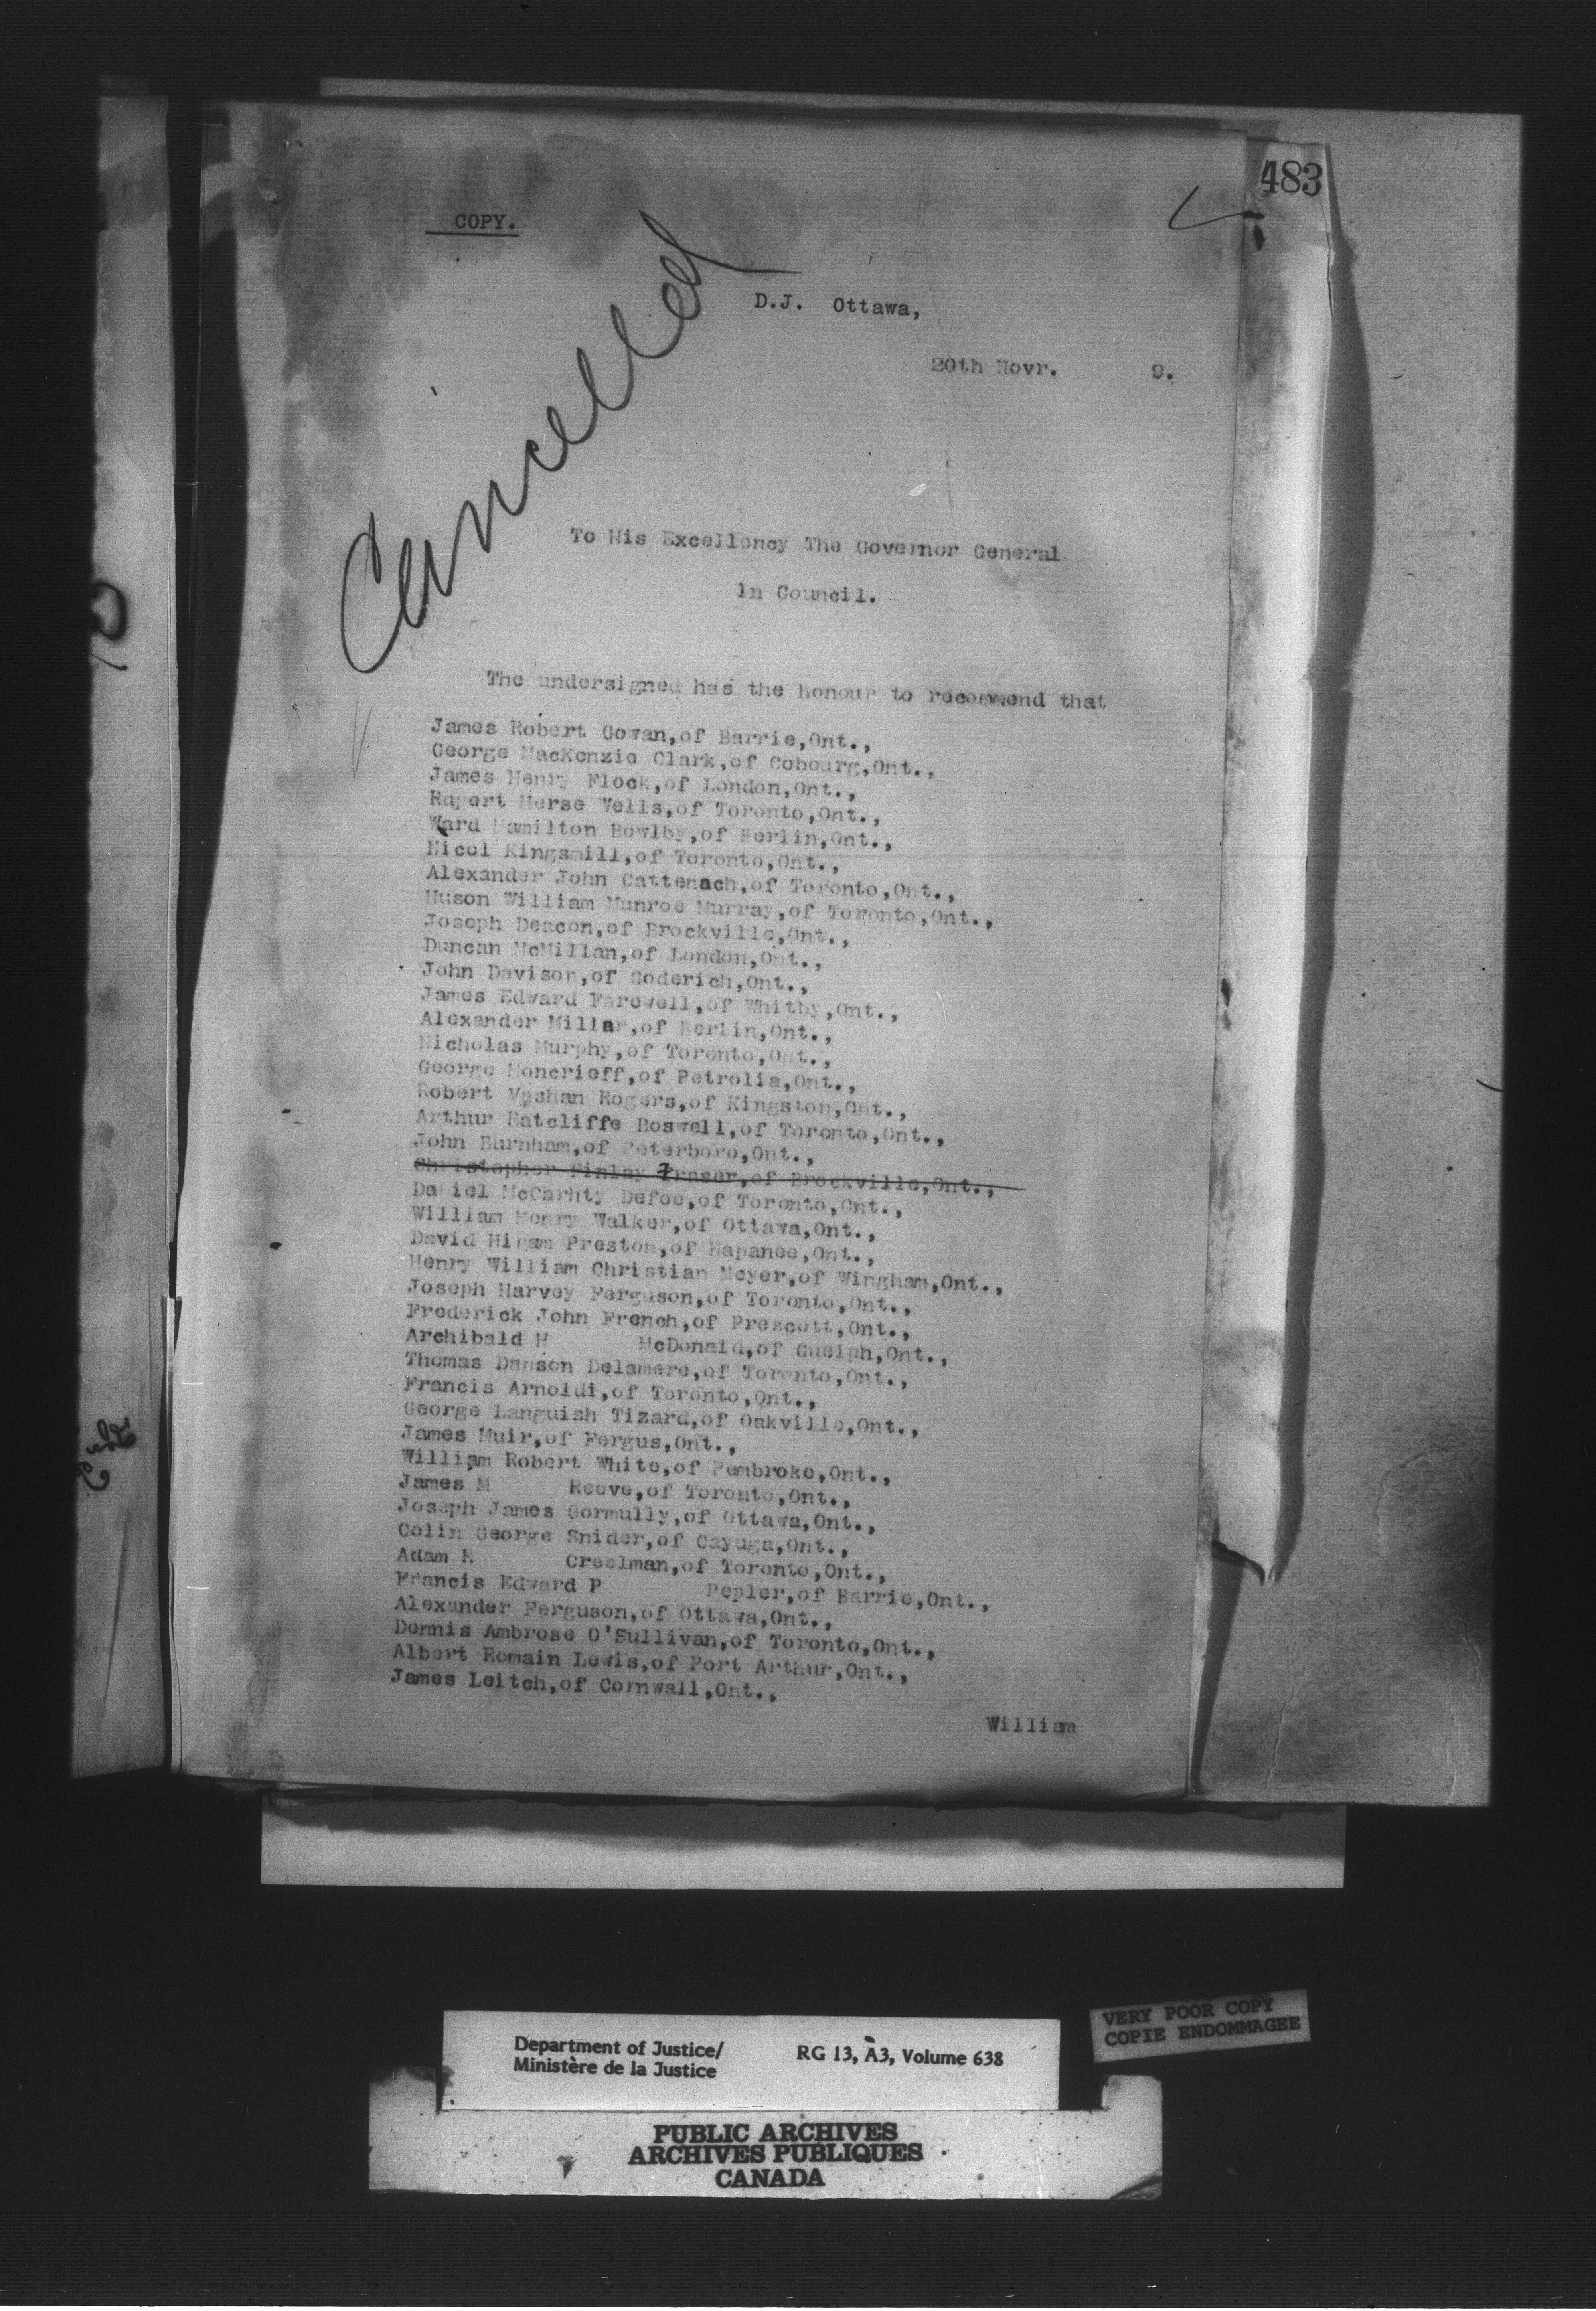 483
COPY.
Cancelled
D.J. Ottawa,
20th Novr. 9.
To His Excellency The Governor General
in Council.
The undersigned has the honour to recommend that
James Robert Gowan,of Barrie,Ont.,
George MacKenzie Clark,of Cobourg,Ont.,
James Henry Flock,of London,Ont.,
Rupert Merse Wells,of Toronto,Ont.,
Ward Hamilton Bowlby,of Berlin,Ont.,
Nicol Kingsmill,of Toronto,Ont.,
Alexander John Cattenach,of Toronto,Ont.,
Huson William Munroe Murray,of Toronto,Ont.,
Joseph Deacon,of Brockville,Ont.,
Duncan McMillan,of London,Ont.,
John Davison,of Goderich,Ont.,
James Edward Farewell,of Whitby,Ont.,
Alexander Millar,of Berlin,Ont.,
Nicholas Murphy,of Toronto,Ont.,
George Moncrieff,of Petrolia,Ont.,
Robert Vashan Rogers,of Kingston,Ont.,
Arthur Ratcliffe Boswell,of Toronto,Ont.,
John Burnham,of Peterboro,Ont.,
Christopher Finlay Fraser,of Brockville,Ont.,
Daniel McCarhty Defoe,of Toronto,Ont.,
William Henry Walker,of Ottawa,Ont.,
David Hiram Preston,of Napanee,Ont.,
Henry William Christian Meyer,of Wingham,Ont.,
Joseph Harvey Ferguson,of Toronto,Ont.,
Frederick John French,of Prescott,Ont.,
Archibald H McDonald,of Guelph,Ont.,
Thomas Dawson Delamere,of Toronto,Ont.,
Francis Arnoldi,of Toronto,Ont.,
George Languish Tizard,of Oakville,Ont.,
James Muir,of Fergus,Ont.,
William Robert White,of Pembroke,Ont.,
James M Reeve,of Toronto,Ont.,
Joseph James Gormully,of Ottawa,Ont.,
Colin George Snider,of Cayuga,Ont.,
Adam R Creelman,of Toronto,Ont.,
Francis Edward P Pepler,of Barrie,Ont.,
Alexander Ferguson,of Ottawa,Ont.,
Dennis Ambrose O'Sullivan,of Toronto,Ont.,
Albert Romain Lewis,of Port Arthur,Ont.,
James Leitch,of Cornwall,Ont.,
William
Department of Justice/
Ministère de la Justice
RG 13, A3, Volume 638
VERY POOR COPY
COPIE ENDOMMAGEE
PUBLIC ARCHIVES
ARCHIVES PUBLIQUES
CANADA